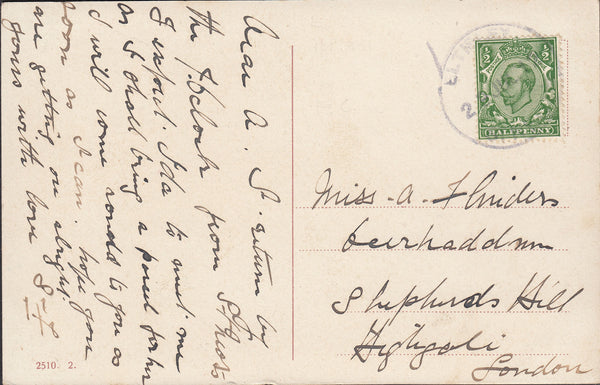 Dear A. I return by
the 7.0clock from St Neots
I expect Ida to meet me
as I shall bring a parcel for her
I will come round to you as
soon as I can. hope you
are getting on alright
yours with love
1/2 1/2
HALFPENNY
Miss A Flinders
Shepherds Hill
Highgate
London
2510. 2.